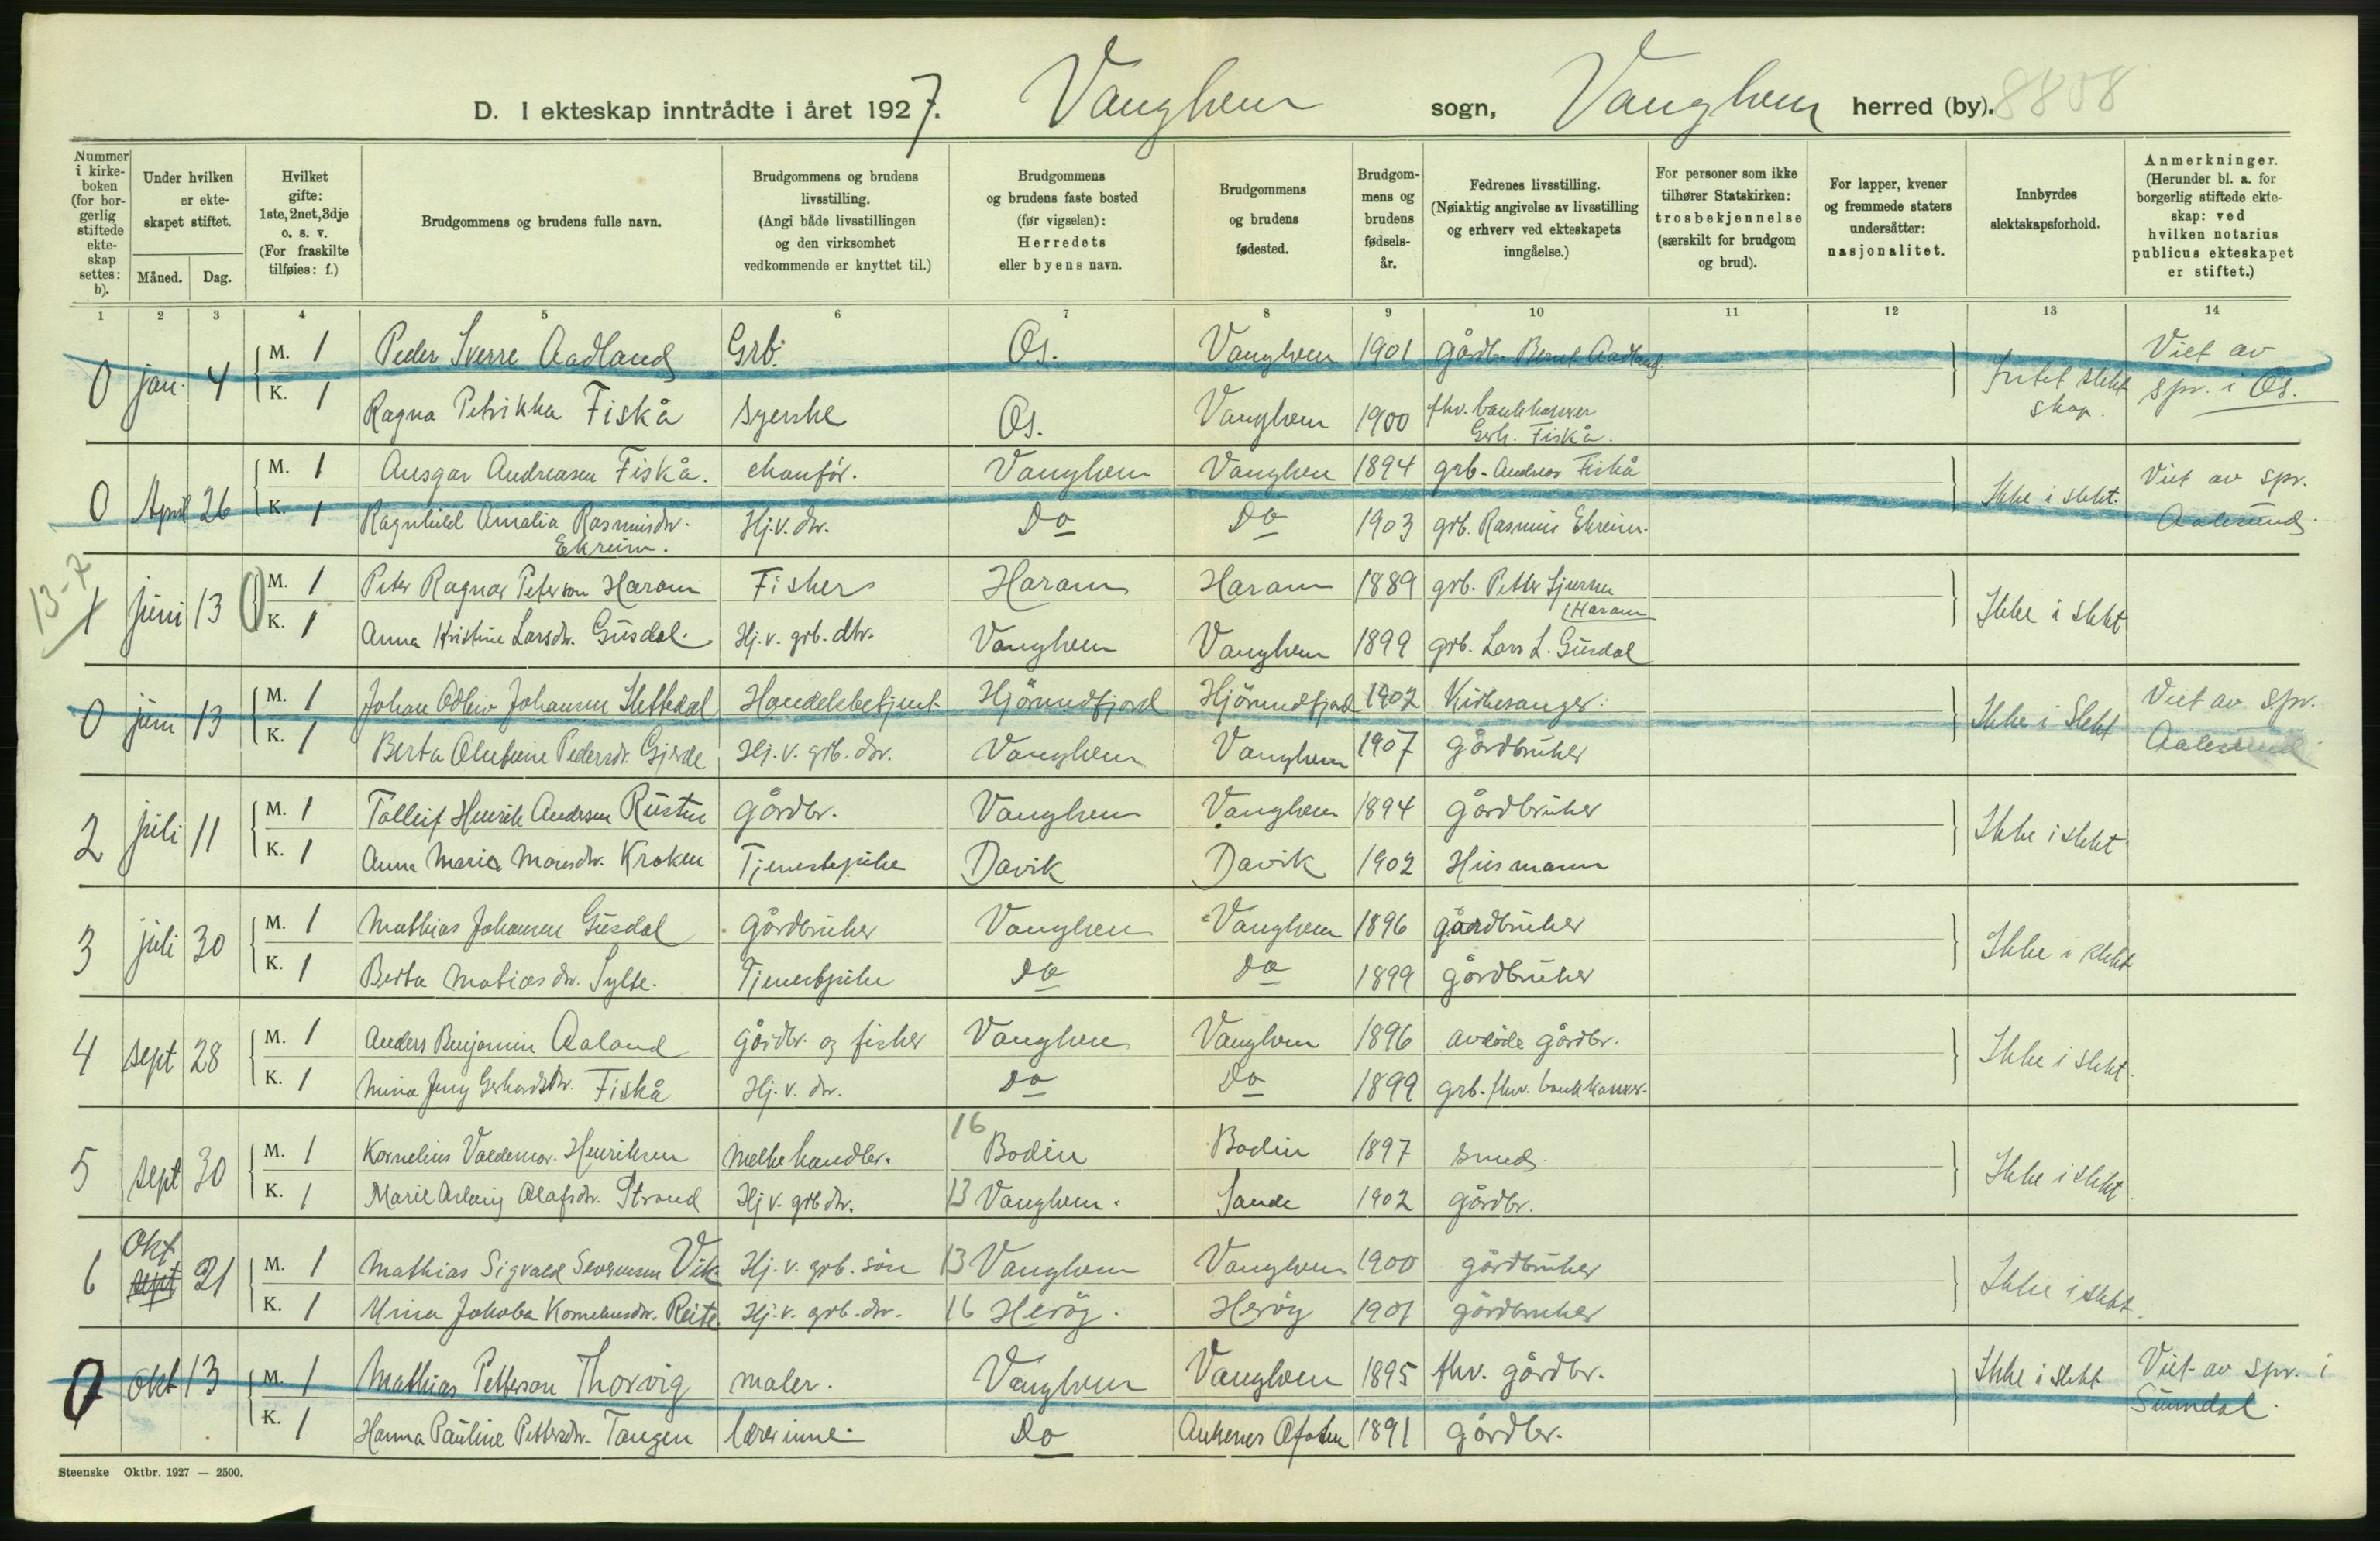 D. I ekteskap inntrådte i året 1927. Vanylven sogn, Vanylven herred (by). 8808
Nummer i kirkeboken (for borgerlig stiftede ekteskap settes: b).
Under hvilken er ekteskapet stiftet.
Måned. Dag.
Hvilket gifte: 1ste, 2net, 3dje o. s. v. (For fraskilte tilføies: f.)
Brudgommens og brudens fulle navn.
Brudgommens og brudens livsstilling. (Angi både livsstillingen og den virksomhet vedkommende er knyttet til.)
Brudgommens og brudens faste bosted (før vigselen): Herredets eller byens navn.
Brudgommens og brudens fødested.
Brudgommens og brudens fødselsår.
Fedrenes livsstilling. (Nøiaktig angivelse av livsstilling og erhverv ved ekteskapets inngåelse.)
For personer som ikke tilhører Statskirken: trosbekjennelse (særskilt for brudgom og brud).
For lapper, kvener og fremmede staters undersåtter: nasjonalitet.
Innbyrdes slektskapsforhold.
Anmerkninger. (Herunder bl. a. for borgerlig stiftede ekteskap: ved hvilken notarius publicus ekteskapet er stiftet.)
1 2 3 4 5 6 7 8 9 10 11 12 13 14
0 jan. 4 M. 1 Peder Sverre Aadland Grb. Os. Vanylven 1901 gårdbr. Bernt Aadland Intet slektskap. Viet av spr. i Os.
K. 1 Ragna Petrikka Fiskå syerske Os. Vanylven 1900 fhv. bankkasserer Gerh. Fiskå.
0 April 26 M. 1 Ansgar Andreasen Fiskå. chauför. Vanylven Vanylven 1894 grb. Andreas Fiskå Ikke i slekt. Viet av spr. Aalesund.
K. 1 Ragnhild Amalia Rasmusdtr. Ekreim. Hj.v. dtr. Do Do 1903 grb. Rasmus Ekreim.
13-7
1 juni 13 M. 1 Peter Ragnar Peterson Haram Fisker Haram Haram 1889 grb. Petter Sjursen Haram Ikke i slekt
K. 1 Anna Kristine Larsdtr. Gusdal. Hj. v. grb. dtr. Vanylven Vanylven 1899 grb. Lars L. Gusdal
0 juni 13 M. 1 Johan Johansen Slettedal Handelsbetjent Hjörundfjord Hjörundfjord 1902 Kirkesanger. Ikke i Slekt Viet av spr. Aalesund
K. 1 Berta Pedersdtr. Gjerde Hj. v. grb. dtr. Vanylven Vanylven 1907 gårdbruker
2 juli 11 M. 1 Tolleif Henrik Andersen Rusten gårdbr. Vanylven Vanylven 1894 gårdbruker Ikke i slekt
K. 1 Anna Marie Monsdtr. Kroken Tjenestepike Davik Davik 1902 Husmann
3 juli 30 M. 1 Mathias Johansen Gusdal gårdbruker Vanylven Vanylven 1896 gaardbruker Ikke i slekt
K. 1 Berta Matiasdtr. Sylte. Tjenestpike Do Do 1899 gårdbruker
4 sept 28 M. 1 Anders Benjamin Aaland gårdbr. og fisker Vanylven Vanylven 1896 avdöde gårdbr. Ikke i slekt.
K. 1 Mina Jeny Gerhardsdtr. Fiskå Hj. v. dtr. Do Do 1899 grb. fhv. bankkasser.
5 sept 30 M. 1 Kornelius Valdemar Henriksen melkehandler. 16 Bodin Bodin 1897 smed. Ikke i slekt.
K. 1 Marie Aslaug Olafsdtr. Strand Hj v. grb dtr. 13 Vanylven. Sande 1902 gårdbr.
6 Okt sept 21 M. 1 Mathias Sigvald Severinsen Vik Hj. v. grb. sön 13 Vanylven Vanylven 1900 gårdbruker Ikke i slekt.
K. 1 Mina Jakoba Korneliusdtr. Reite Hj. v. grb. dtr. 16 Heröy. Heröy 1901 gårdbruker
0 okt 13 M. 1 Mathias Petterson Thorvig maler. Vanylven Vanylven 1895 fhv. gårdbr. Ikke i slekt Viet av spr. i Sunndal.
K. 1 Hanna Pauline Pettersdtr. Tangen lærerinne. Do Ankenes Ofoten 1891 gårdbr.
Steenske Oktbr. 1927 — 2500.